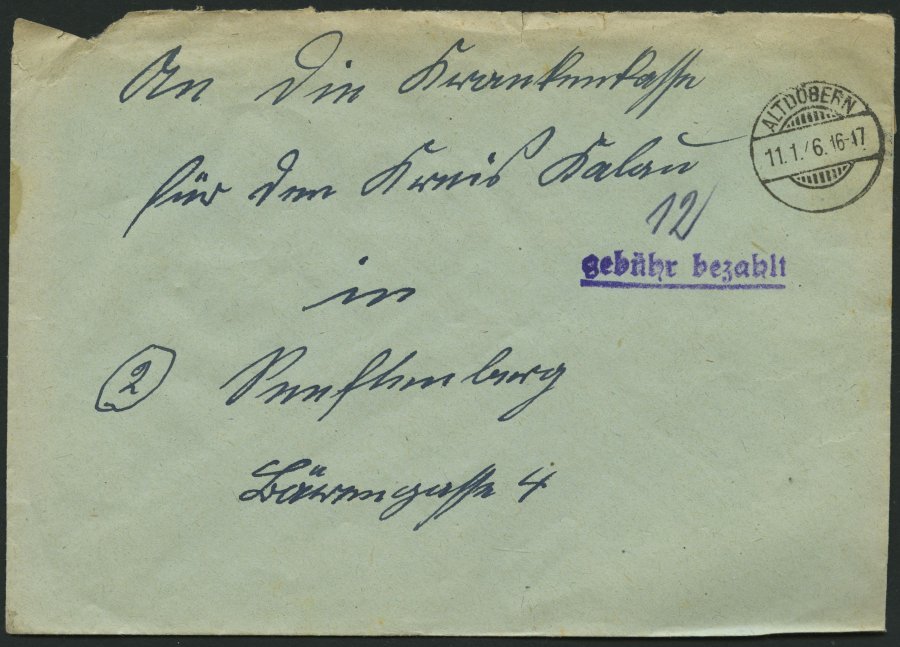 An die Krankenkasse
ALTDÖBERN
11.1.46.16-17
für den Kreis Kalau
12
gebühr bezahlt
in
2 Senftenberg
Bärengasse 4